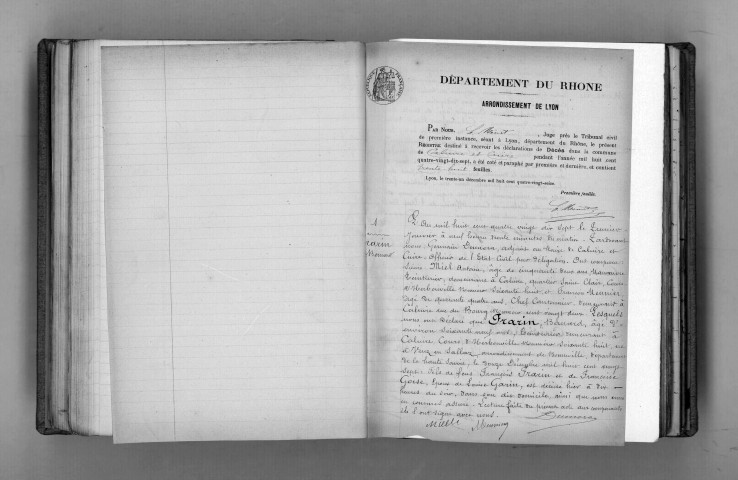 DÉPARTEMENT DU RHONE
ARRONDISSEMENT DE LYON
PAR NOUS, Juge près le Tribunal civil
de première instance, séant à Lyon, département du Rhône, le présent
REGISTRE destiné à recevoir les déclarations de Décès dans la commune
de Caluire et Cuire pendant l'année mil huit cent
quatre-vingt-dix-sept, a été coté et paraphé par première et dernière, et contient
trente huit feuilles.
Lyon, le trente-un décembre mil huit cent quatre-vingt-seize.
Première feuille.
1
Frarin
L'An mil huit cent quatre vingt dix sept le premier
Janvier à neuf heures trente minutes du matin. Pardevant
nous, Germain, adjoint au Maire de Caluire et
Cuire, officier de l'Etat Civil par délégation. Ont comparu
Antoine, âgé de cinquante deux ans
demeurant à Caluire, quartier Saint Clair, Cours
d'Herbouville numéro soixante huit et Francois Meunier,
âgé de quarante quatre ans, Chef Cantonnier demeurant à
Caluire rue du Bourg numéro cent vingt deux Lesquels
nous ont déclaré que Frarin, Bernard, âgé d'
environ soixante neuf ans, demeurant à
Caluire, Cours d'Herbouville numéro soixante huit, né
à Viuz en Sallaz, arrondissement de Bonneville, département
de la haute Savoie, le mil huit cent vingt
sept: fils de feus François Frarin et de Francoise
Gorse, époux de Garin, est décédé hier à dix
heures du soir, dans son dit domicile, ainsi que nous nous
en sommes assuré. Lecture faite du présent acte aux comparants
ils l'ont signé avec nous.
Meunier